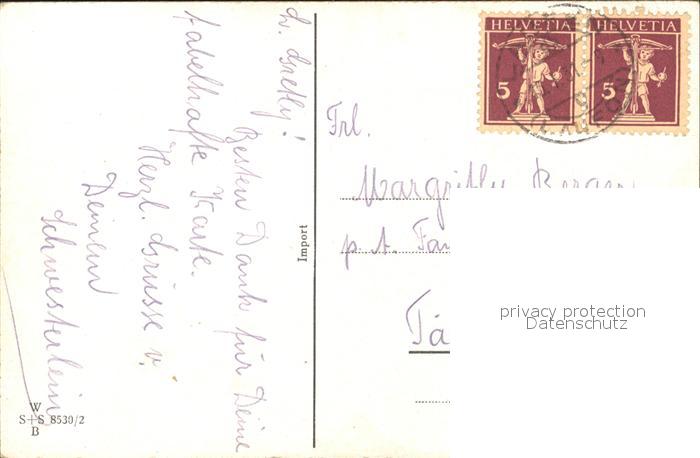 L. Gretly!
Besten Dank für Deine
fabelhafte Karte.
Herzl. Grüsse v.
Deinem
Schwesterlein
Import
W
S+S 8530/2
B
HELVETIA HELVETIA
5 5
Frl.
Margrithly
p. t. Fa
Tä
privacy protection
Datenschutz